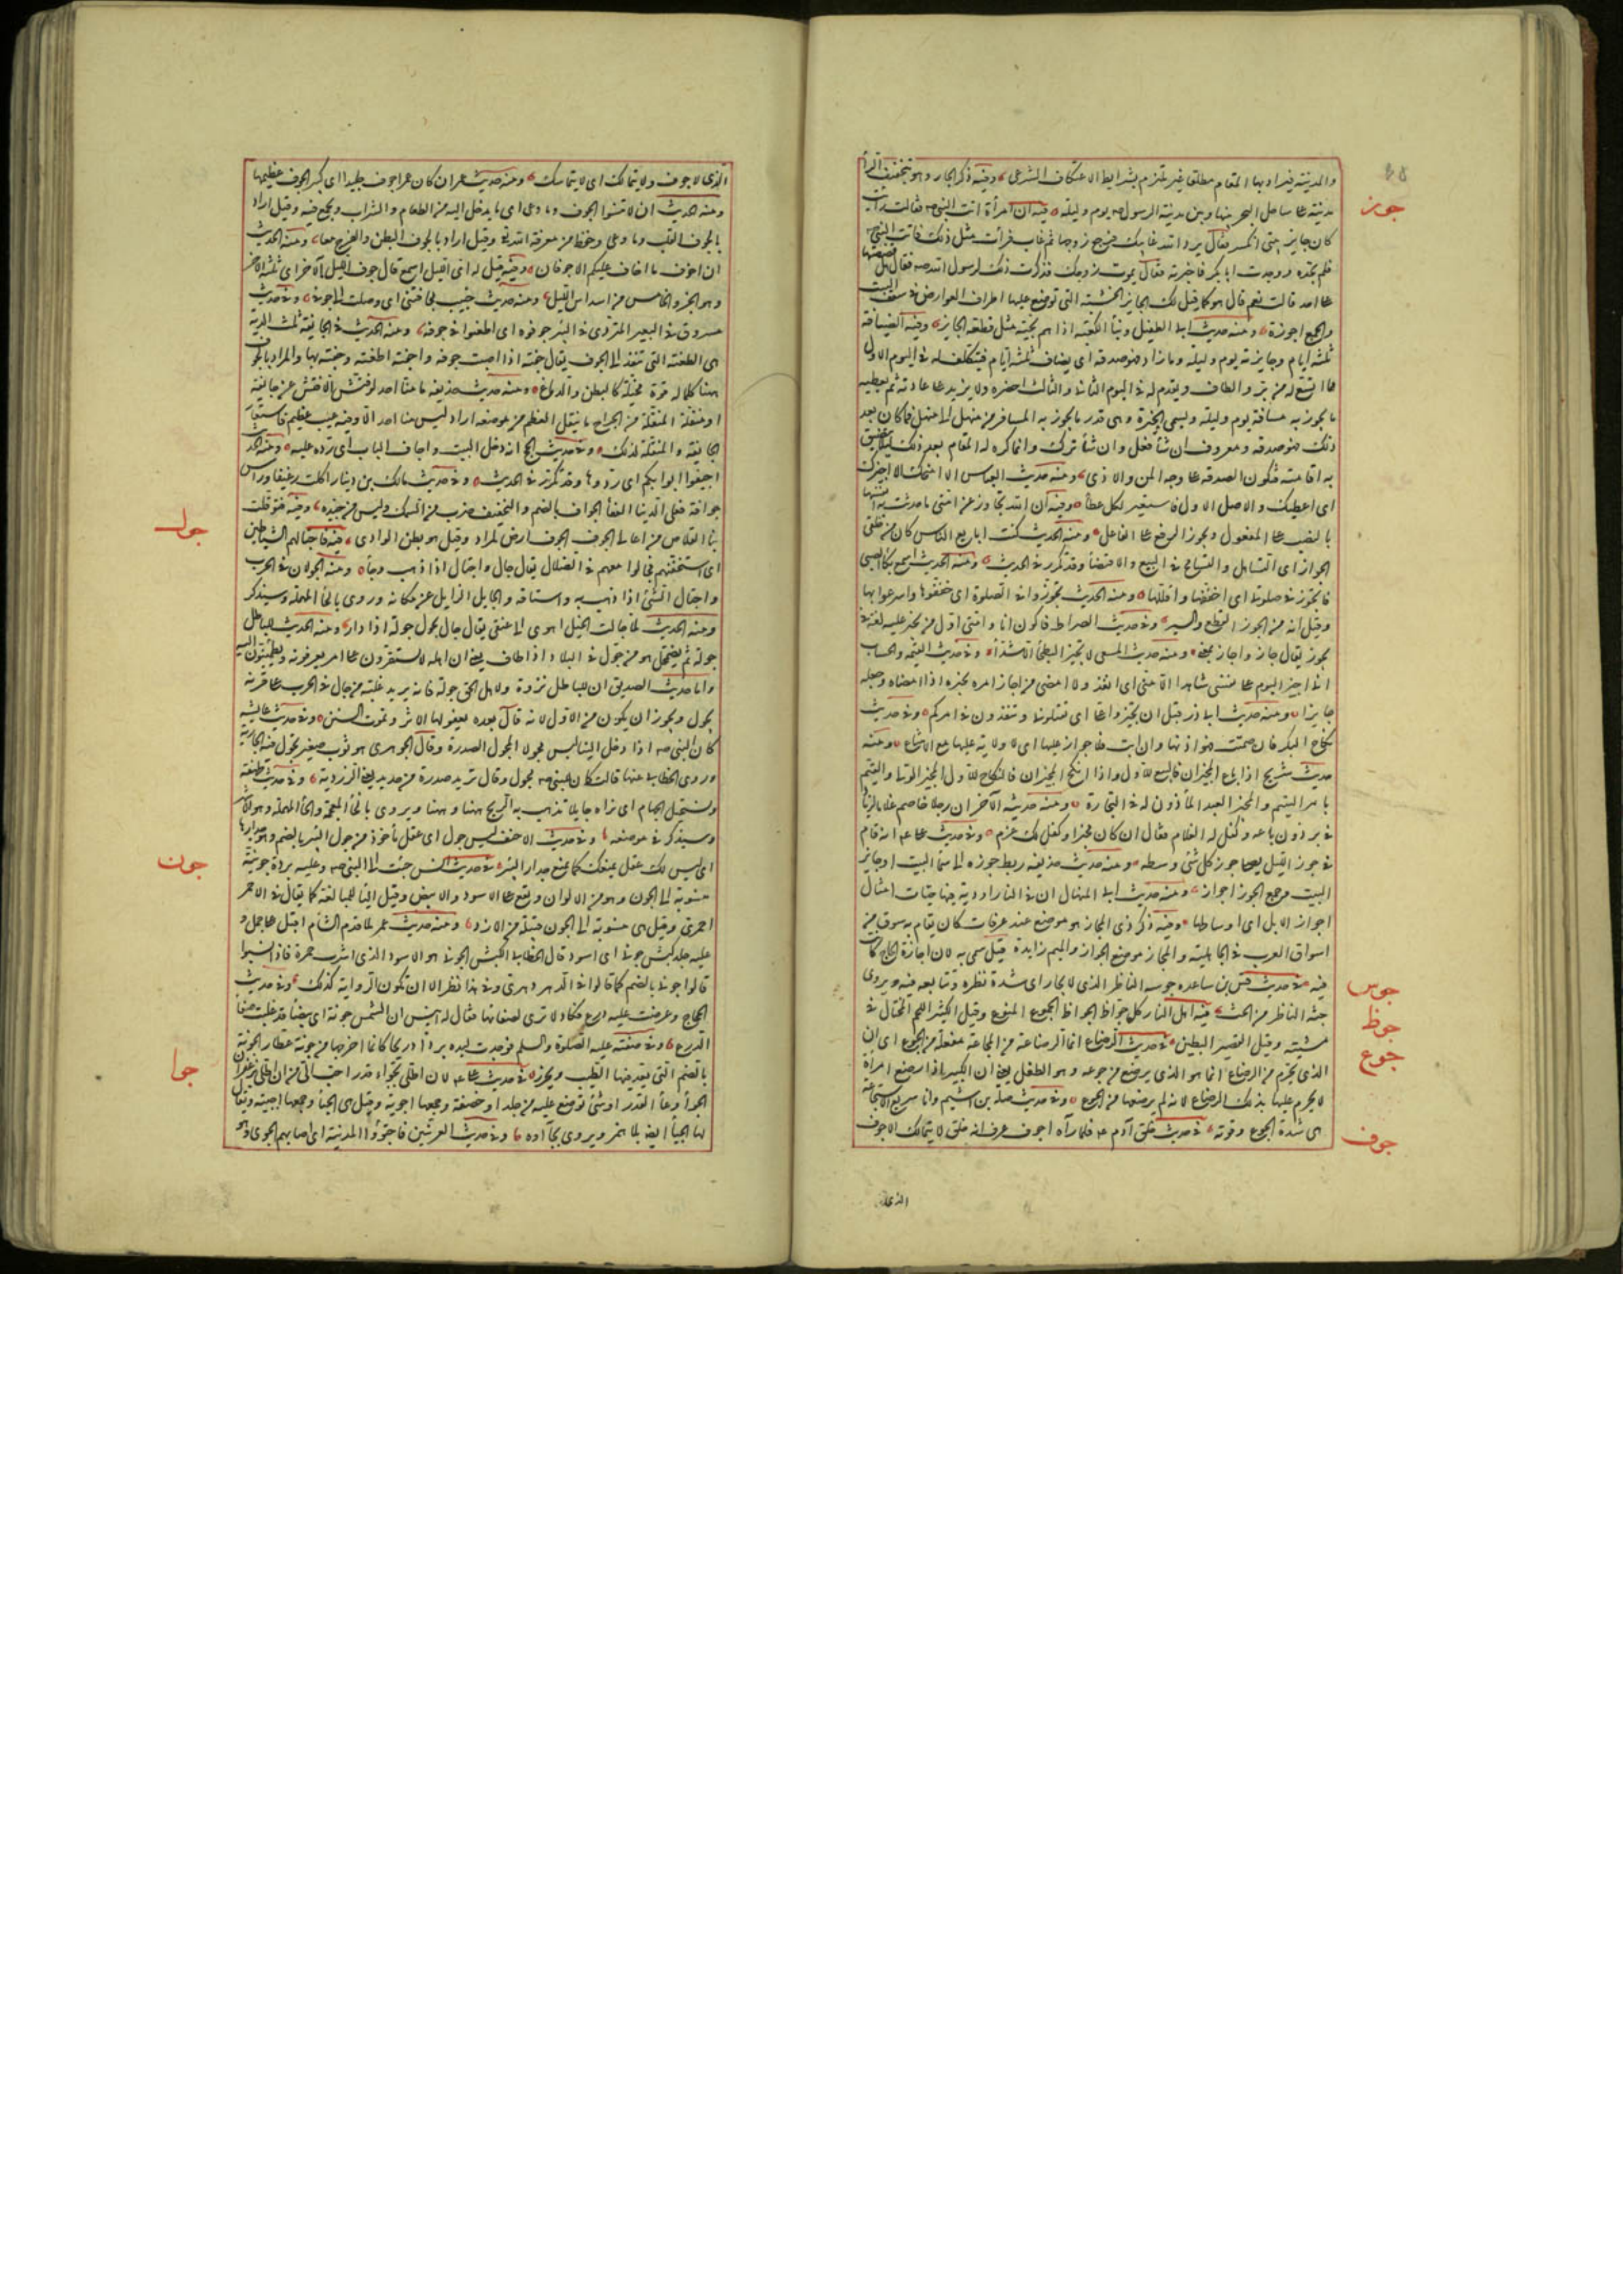 والمدينة فيراد بها المقام مطلقا غير ملتزم بشرايط الاعتكاف الشرعى وفيه ذكر الجار وهو بتخفيف الراء
جوز
مدينة على ساحل البحر بينها وبين مدينة الرسول صه يوم وليلة فيه ان امرأة اتت النبى صه فقالت رأيت
كان جايز بيتى انكسر فقال يرد الله غايبك فرجع زوجها ثم غاب فرأت مثل ذلك فاتت النبى صه
فلم تجده ووجدت ابابكر فاخبرته فقال يموت زوجك فذكرت ذلك لرسول الله صه فقال هل قصصتها
على احد قالت نعم قال هو كما قيل لك الجايز الخشبة التى توضع عليها اطراف العوارض فى سقف البيت
والجمع اجوزة ومنه حديث ابى الطفيل وبناء الكعبة اذا هم بحية مثل قطعة الجايز وفيه الضيافة
ثلثة ايام وجايزته يوم وليلة وما زاد فهو صدقة اى يضاف ثلثة ايام فيتكلف له فى اليوم الاول
مما اتسع له من بر والطاف ويقدم له فى اليوم الثانى والثالث ما حضره ولا يزيد على عادته ثم يعطيه
ما يجوز به مسافة يوم وليلة ويسمى الجيزة وهى قدر ما يجوز به المسافر من منهل الى منهل فما كان بعد
ذلك فهو صدقة ومعروف ان شاء فعل وان شاء ترك وانما كره له المقام بعد ذلك لئلا تضيق
به اقامته فتكون الصدقة على وجه المن والاذى ومنه حديث العباس الا امنحك الا اجيزك
اى اعطيك والاصل الاول فاستعير لكل عطاء وفيه ان الله تجاوز عن امتى ما حدثت به انفسها
بالنصب على المفعول ويجوز الرفع على الفاعل ومنه الحديث كنت ابايع الناس كان من خلقى
الجواز اى التساهل والتسامح فى البيع والاقتضاء وقد تكرر فى الحديث ومنه الحديث اسمع بكاء الصبى
فاتجوز فى صلوتى اى اخففها واقللها ومنه الحديث تجوزوا فى الصلوة اى خففوها واسرعوا بها
وقيل انه من الجوز القطع والسير وفى حديث الصراط فاكون انا وامتى اول من يجيز عليه لغة فى
يجوز يقال جاز واجاز بمعنى ومنه حديث المسعى لا تجيز البطحاء الا شدا وفى حديث القيمة والحساب
انى لا اجيز اليوم على نفسى شاهدا الا منى اى لا انفذ ولا امضى من اجاز امره يجيزه اذا امضاه وجعله
جايزا ومنه حديث ابى ذر قبل ان تجيزوا على اى تقتلونى وتنفذون فى امركم وفى حديث
نكاح البكر فان صمتت فهو اذنها وان ابت فلا جواز عليها اى لا ولاية عليها مع الامتناع ومنه
حديث شريح اذا باع المجيزان فالبيع للاول واذا انكح المجيزان فالنكاح للاول المجيز الولى والقيم
بامر اليتيم والمجيز العبد المأذون له فى التجارة ومنه حديثه الآخر ان رجلا خاصم غلاما لزياد
فى برذون باعه وكفل له الغلام فقال ان كان مجيزا وكفل لك غرم وفى حديث على عه انه قام
فى جوز الليل يصلى جوز كل شئ وسطه ومنه حديث حذيفة ربط جوزه الى سماء البيت او جايز
البيت وجمع الجوز اجواز ومنه حديث ابى المنهال ان فى النار اودية فيها حيات امثال
اجواز الابل اى اوساطها وفيه ذكر ذى المجاز هو موضع عند عرفات كان يقام به سوق من
اسواق العرب فى الجاهلية والمجاز موضع الجواز والميم زايدة قيل سمى به لان اجازة الحاج كانت
جوس
فيه فى حديث قس بن ساعدة جوسة الناظر الذى لا يحار اى شدة نظره وتتابعه فيه ويروى
جوظ
حثة الناظر من الحث فيه اهل النار كل جواظ الجواظ الجموع المنوع وقيل الكثير اللحم المختال فى
جوع
مشيته وقيل القصير البطين فى حديث الرضاع انما الرضاعة من المجاعة مفعلة من الجوع اى ان
الذى يحرم من الرضاع انما هو الذى يرضع من جوعه وهو الطفل يعنى ان الكبير اذا رضع امرأة
لا يحرم عليها بذلك الرضاع لانه لم يرضعها من الجوع وفى حديث صلة بن اشيم وانا سريع الاستجاعة
جوف
هى شدة الجوع وقوته فى حديث خلق آدم عه فلما رآه اجوف عرف انه خلق لا يتمالك الاجوف
الذى
الذى له جوف ولا يتمالك اى لا يتماسك ومنه حديث عمران كان عمر اجوف جليدا اى كبير الجوف عظيمها
ومنه الحديث ان لا تنسوا الجوف وما وعى اى ما يدخل اليه من الطعام والشراب ويجمع فيه وقيل اراد
بالجوف القلب وما وعى وحفظ من معرفة الله تع وقيل اراد بالجوف البطن والفرج معا ومنه الحديث
ان اخوف ما اخاف عليكم الاجوفان وفيه قيل له اى الليل اسمع قال جوف الليل الآخر اى ثلثه الآخر
وهو الجزو الخامس من اسداس الليل ومنه حديث خبيب فجافتنى اى وصلت الى جوفى وفى حديث
مسروق فى البعير المتردى فى البير جوفوه اى اطعنوا فى جوفه ومنه الحديث فى الجايفة ثلث الدية
هى الطعنة التى تنفذ الى الجوف يقال جفته اذا اصبت جوفه واجفته الطعنة وجفته بها والمراد بالجوف
ههنا كل ما له قوة محيلة كالبطن والدماغ ومنه حديث حذيفة ما منا احد لو فتش الا فتش عن جايفة
او منقلة المنقلة من الجراح ما ينقل العظم من موضعه اراد ليس منا احد الا وفيه عيب عظيم فاستعار
الجايفة والمنقلة لذلك وفى حديث الحج انه دخل البيت واجاف الباب اى رده عليه ومنه الحديث
اجيفوا ابوابكم اى ردوها وقد تكرر فى الحديث وفى حديث مالك بن دينار اكلت رغيفا ورأس
جوافة فعلى الدنيا العفاء الجواف بالضم والتخفيف ضرب من السمك وليس من جيده وفيه فتوقلت
جول
بنا القلاص من اعالى الجوف الجوف ارض لمراد وقيل هو بطن الوادى فيه فاجتالتهم الشياطين
اى استخفتهم فجالوا معهم فى الضلال يقال جال واجتال اذا ذهب وجاء ومنه الجولان فى الحرب
واجتال الشئ اذا ذهب به واستاقه والجايل الزايل عن مكانه وروى بالحاء المهملة وسيذكر
ومنه الحديث لما جالت الخيل اهوى الى عنقى يقال جال يجول جولة اذا دار ومنه الحديث للباطل
جولة ثم يضمحل هو من جول فى البلاد اذا طاف يعنى ان اهله لا يستقرون على امر يعرفونه ويطمئنون اليه
واما حديث الصديق ان للباطل نزوة ولاهل الحق جولة فانه يريد غلبة من جال فى الحرب على قرنه
يجول ويجوز ان يكون من الاول لانه قال بعده يعفو لها الاثر وتموت السنن وفى حديث عايشة
كان النبى صه اذا دخل الينا لبس مجولا المجول الصدرة وقال الجوهرى هو ثوب صغير يجول فيه الجارية
وروى الخطابى عنها قالت كان للنبى صه مجول وقال تريد صدرة من حديد يعنى الزردية وفى حديث طهفة
ونستجيل الجهام اى نراه جايلا تذهب به الريح ههنا وههنا ويروى بالخاء المعجمة والحاء المهملة وهو الاشهر
وسيذكر فى موضعه وفى حديث الاحنف ليس جول اى عقل مأخوذ من جول البئر بالضم وهو جدارها
جون
اى ليس لك عقل يمنعك كما يمنع جدار البئر فى حديث انس جئت الى النبى صه وعليه بردة جونية
منسوبة الى الجون وهو من الالوان ويقع على الاسود والابيض وقيل الياء للمبالغة كما يقال فى الاحمر
احمرى وقيل هى منسوبة الى الجون قبيلة من الازد ومنه حديث عمر لما قدم الشام اقبل على جمل و
عليه جلد كبش جونى اى اسود قال الخطابى الكبش الجونى هو الاسود الذى اشرب حمرة فاذا نسبوا
قالوا جونى بالضم كما قالوا فى الدهر دهرى وفى هذا نظر الا ان تكون الرواية كذلك وفى حديث
الحجاج وعرضت عليه درع فكاد لا ترى لصفائها فقال له انيس ان الشمس جونة اى بيضاء قد غلبت صفاء
الدرع وفى صفته عليه الصلوة والسلم فوجدت ليده بردا وريحا كانما اخرجها من جونة عطار الجونة
جوا
بالضم التى يعد فيها الطيب ويحرز فى حديث على عه لان اطلى بجواء قدر احب الى من ان اطلى بزعفران
الجواء وعاء القدر او شئ توضع عليه من جلد او خصفة وجمعها اجوية وقيل هى الجئاء وجمعها اجئية ويقال
لها الجياء ايضا بلا همز ويروى بجآوة وفى حديث العرنيين فاجتووا المدينة اى اصابهم الجوى وهو